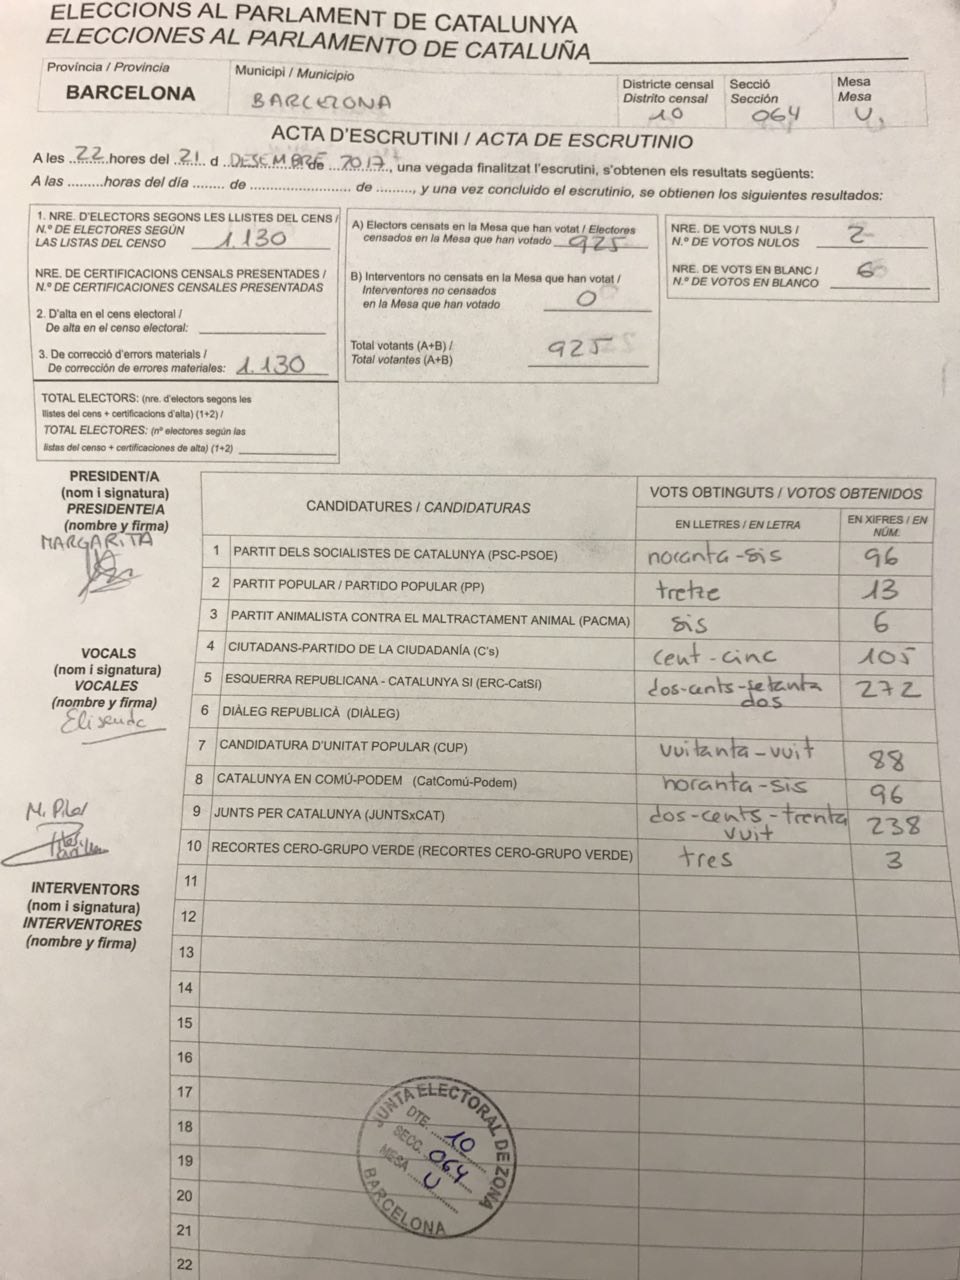 ELECCIONS AL PARLAMENT DE CATALUNYA
ELECCIONES AL PARLAMENTO DE CATALUÑA
Provincia / Provincia
BARCELONA
Municipi / Municipio
BARCELONA
Districte censal
Distrito censal
10
Secció
Sección
064
Mesa
Mesa
U.
ACTA D'ESCRUTINI / ACTA DE ESCRUTINIO
A les 22 hores del 21 d DESEMBRE de 2017, una vegada finalitzat l'escrutini, s'obtenen els resultats següents:
A las .........horas del día ........ de ........................ de ........., y una vez concluido el escrutinio, se obtienen los siguientes resultados:
1. NRE. D'ELECTORS SEGONS LES LLISTES DEL CENS /
N.º DE ELECTORES SEGÚN
LAS LISTAS DEL CENSO 1.130
NRE. DE CERTIFICACIONS CENSALS PRESENTADES /
N.º DE CERTIFICACIONES CENSALES PRESENTADAS
2. D'alta en el cens electoral /
De alta en el censo electoral:
3. De correcció d'errors materials /
De corrección de errores materiales: 1.130
TOTAL ELECTORS: (nre. d'electors segons les
llistes del cens + certificacions d'alta) (1+2) /
TOTAL ELECTORES: (nº electores según las
listas del censo + certificaciones de alta) (1+2)
A) Electors censats en la Mesa que han votat / Electores
censados en la Mesa que han votado 925
B) Interventors no censats en la Mesa que han votat /
Interventores no censados
en la Mesa que han votado 0
Total votants (A+B) /
Total votantes (A+B) 925
NRE. DE VOTS NULS /
N.º DE VOTOS NULOS 2
NRE. DE VOTS EN BLANC /
N.º DE VOTOS EN BLANCO 6
PRESIDENT/A
(nom i signatura)
PRESIDENTE/A
(nombre y firma)
MARGARITA
VOCALS
(nom i signatura)
VOCALES
(nombre y firma)
Elisenda
M. Pilar
INTERVENTORS
(nom i signatura)
INTERVENTORES
(nombre y firma)
CANDIDATURES / CANDIDATURAS
VOTS OBTINGUTS / VOTOS OBTENIDOS
EN LLETRES / EN LETRA
EN XIFRES / EN
NÚM.
1 PARTIT DELS SOCIALISTES DE CATALUNYA (PSC-PSOE) noranta-sis 96
2 PARTIT POPULAR / PARTIDO POPULAR (PP) tretze 13
3 PARTIT ANIMALISTA CONTRA EL MALTRACTAMENT ANIMAL (PACMA) sis 6
4 CIUTADANS-PARTIDO DE LA CIUDADANÍA (C's) cent-cinc 105
5 ESQUERRA REPUBLICANA - CATALUNYA SI (ERC-CatSí) dos-cents-setanta 272
dos
6 DIÀLEG REPUBLICÀ (DIÀLEG)
7 CANDIDATURA D'UNITAT POPULAR (CUP) vuitanta-vuit 88
8 CATALUNYA EN COMÚ-PODEM (CatComú-Podem) noranta-sis 96
9 JUNTS PER CATALUNYA (JUNTSxCAT) dos-cents-trenta 238
vuit
10 RECORTES CERO-GRUPO VERDE (RECORTES CERO-GRUPO VERDE) tres 3
11
12
13
14
15
16
17
18
19
20
21
22
JUNTA ELECTORAL DE ZONA
DTE. 10
SECC. 064
MESA U
BARCELONA